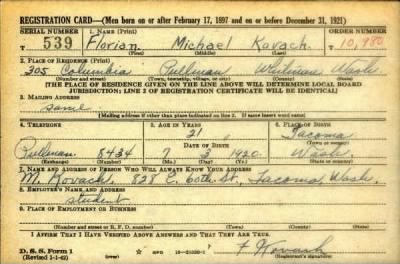 REGISTRATION CARD—(Men born on or after February 17, 1897 and on or before December 31, 1921)
SERIAL NUMBER 1. NAME (Print) ORDER NUMBER
T 539 Florian Michael Kovach T 10,980
(First) (Middle) (Last)
2. PLACE OF RESIDENCE (Print)
305 Columbia Pullman Whitman Wash
(Number and street) (Town, township, village, or city) (County) (State)
[THE PLACE OF RESIDENCE GIVEN ON THE LINE ABOVE WILL DETERMINE LOCAL BOARD
JURISDICTION; LINE 2 OF REGISTRATION CERTIFICATE WILL BE IDENTICAL]
3. MAILING ADDRESS
same
[Mailing address if other than place indicated on line 2. If same insert word same]
4. TELEPHONE 5. AGE IN YEARS 6. PLACE OF BIRTH
21 Tacoma
DATE OF BIRTH (Town or county)
Pullman 8434 7 3 1920 Wash
(Exchange) (Number) (Mo.) (Day) (Yr.) (State or country)
7. NAME AND ADDRESS OF PERSON WHO WILL ALWAYS KNOW YOUR ADDRESS
M. Kovach, 828 E. 60th St, Tacoma, Wash.
8. EMPLOYER'S NAME AND ADDRESS
student
9. PLACE OF EMPLOYMENT OR BUSINESS
(Number and street or R. F. D. number) (Town) (County) (State)
I AFFIRM THAT I HAVE VERIFIED ABOVE ANSWERS AND THAT THEY ARE TRUE.
D. S. S. Form 1 GPO F Kovach
(Revised 1-1-42) (Registrant's signature)